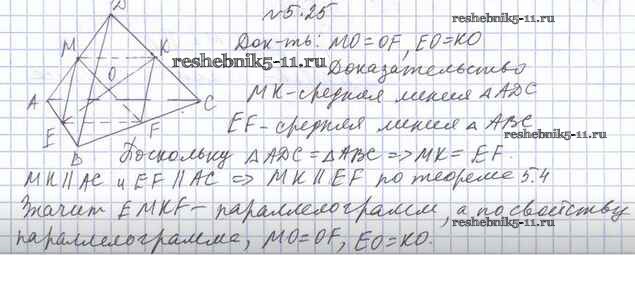 №5.25
D
Док-ть: MO=OF, EO=KO
reshebnik5-11.ru
M
K
reshebnik5-11.ru
Доказательство
O
MK-средная линия △ADC
A
C
EF-средная линия △ABC
reshebnik5-11.ru
E
F
B
Поскольку △ADC=△ABC => MK=EF.
MK∥AC и EF∥AC => MK∥EF по теореме 5.4
Значит EMKF-параллелограмм, а по свойству
параллелограмма, MO=OF, EO=KO.
reshebnik5-11.ru